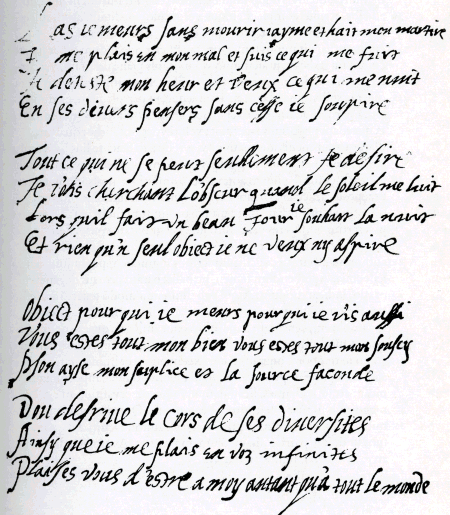 Las ie meurs sans mourir iayme et hait mon martire
Ie me plais en mon mal et fuis ce qui me suit
Ie deteste mon heur et veux ce qui me nuit
En ses divers pensers sans cesse ie soupire
Tout ce qui ne se peut seullement Je desire
Je vois cherchant L'obscur quand le soleil me luit
Lors quil fait un beau Jour ie souhait La nuit
Et rien qu'n seul obiect ie ne veux ny aspire
Obiect pour qui ie meurs pour qui ie vis aussi
Vous estes tout mon bien vous estes tout mon soucy
Mon ayse mon suplice et La source faconde
Dou desrive le cors de ses diversites
Ainsy que ie me plais en voz infinites
Plaises vous d'estre a moy autant qu'a tout le monde